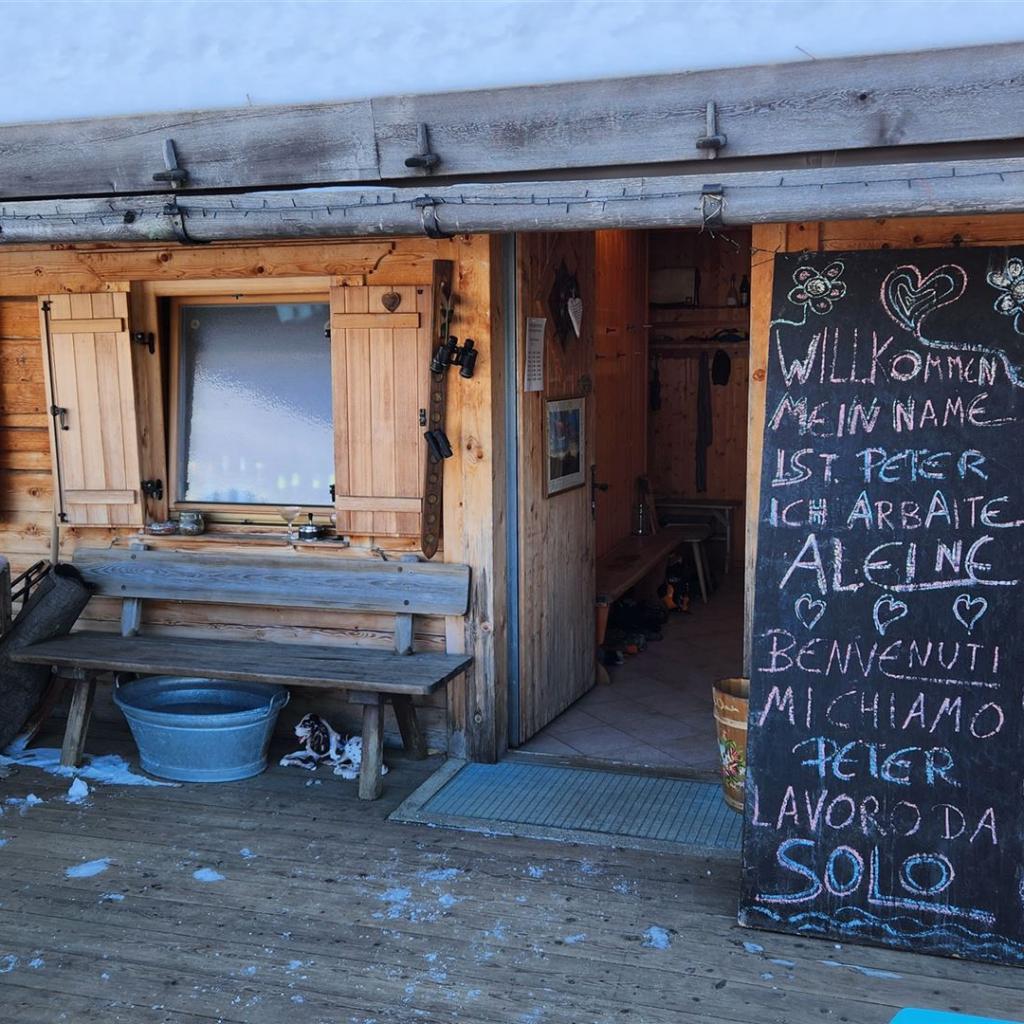 WILLKOMMEN
MEIN NAME
IST PETER
ICH ARBAITE
ALEINE
BENVENUTI
MI CHIAMO
PETER
LAVORO DA
SOLO